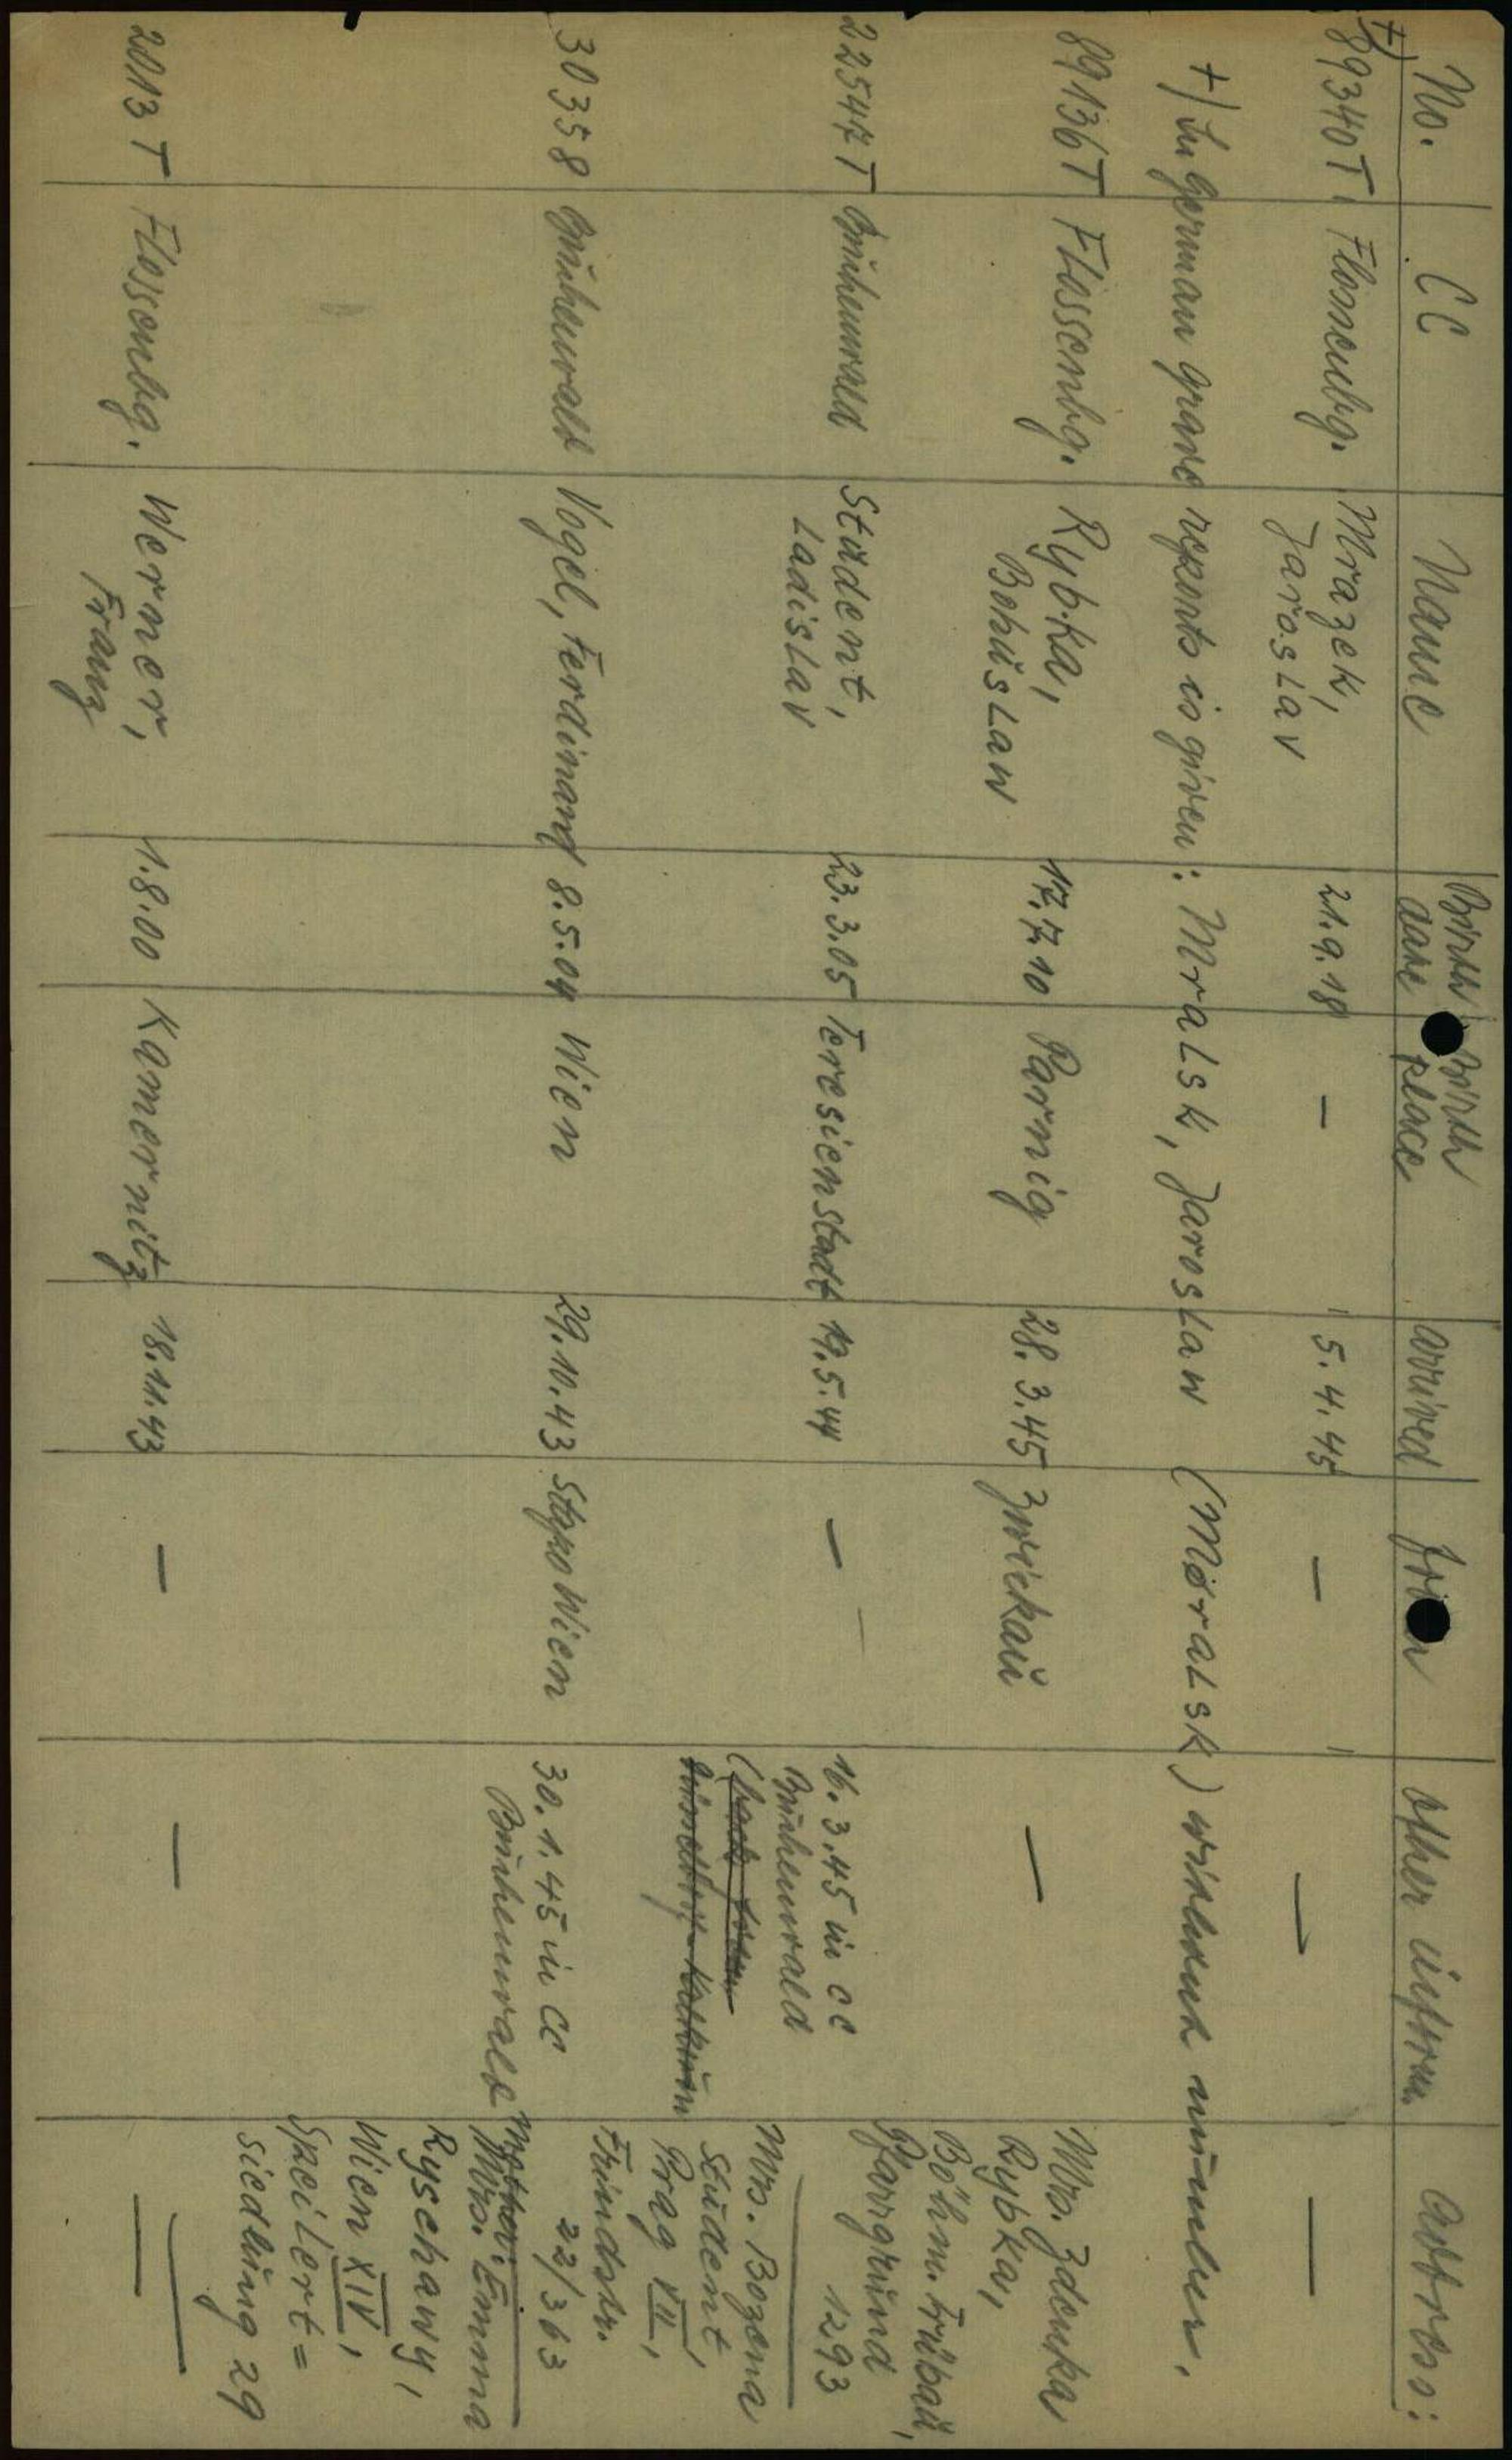 No. CC Name Birth date Birth place arrived from other inform. Address:
+) 89340 T. Flossenbg. Mrazek, 21.9.18 — 5.4.45 — — —
Jaroslav
+) In german grave reports is given: Mralsk, Jaroslaw (Moralsk) without number.
89136 T Flossenbg. Rybka, 17.7.10 Parnig 28.3.45 Zwickau — Mrs. Zdenka
Bohuslaw Rybka,
Böhm. Trübau,
Pfarrgrund
1293
22547 T Buchenwald Student, 23.3.05 Teresienstadt 19.5.44 — 16.3.45 in CC
Ladislav Buchenwald
Mrs. Bozena
Student,
Prag VII,
22/363
30358 Buchenwald Vogel, Ferdinand 8.5.04 Wien 29.10.43 Stapo Wien 30.1.45 in CC
Buchenwald
Mother:
Mrs. Emma
Ryschawy,
Wien XIV,
Speilert=
siedlung 29
2013 T Flossenbg. Werner, 1.8.00 Kamernitz 18.11.43 — — —
Franz